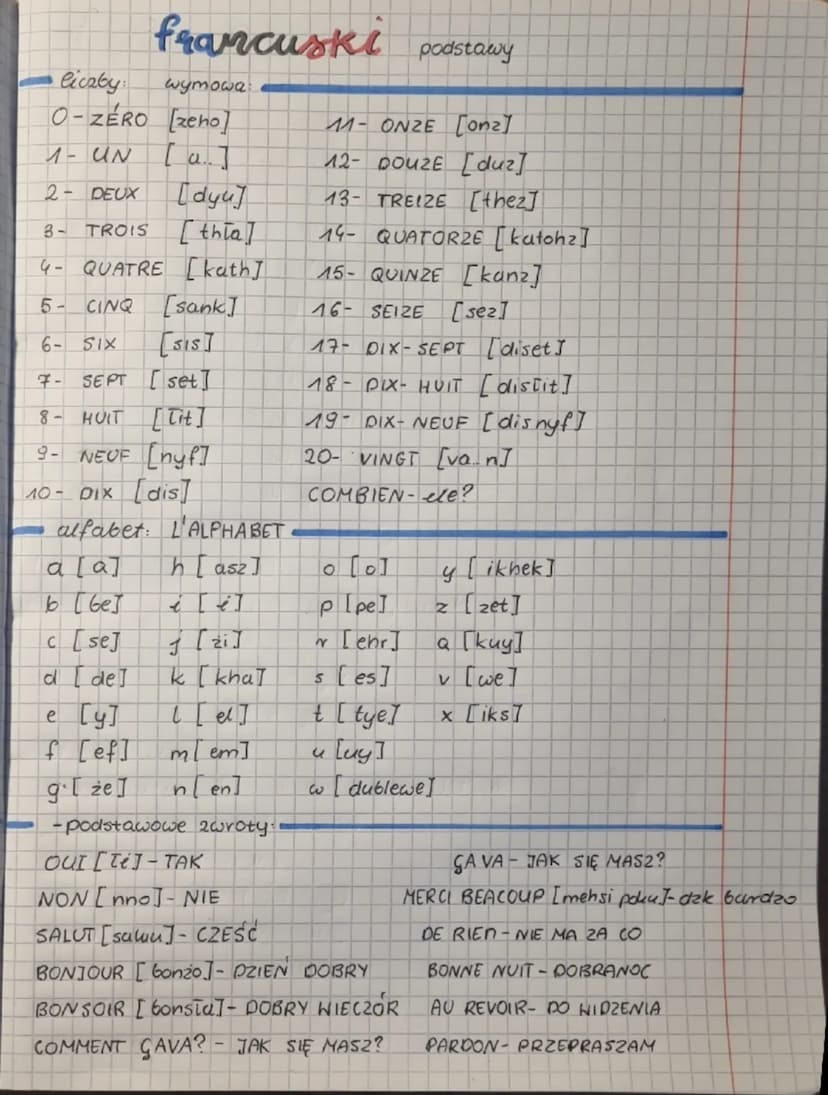 francuski podstawy
liczby: wymowa:
0 - ZÉRO [zeho]
1 - UN [a..]
2 - DEUX [dyu]
3 - TROIS [thła]
4 - QUATRE [kath]
5 - CINQ [sank]
6 - SIX [sis]
7 - SEPT [set]
8 - HUIT [łit]
9 - NEUF [nyf]
10 - DIX [dis]
11 - ONZE [onz]
12 - DOUZE [duz]
13 - TREIZE [thez]
14 - QUATORZE [katohz]
15 - QUINZE [kanz]
16 - SEIZE [sez]
17 - DIX-SEPT [diset]
18 - DIX-HUIT [disłit]
19 - DIX-NEUF [disnyf]
20 - VINGT [va..n]
COMBIEN - ile?
alfabet: L'ALPHABET
a [a]
b [be]
c [se]
d [de]
e [y]
f [ef]
g [że]
h [asz]
i [i]
j [żi]
k [kha]
l [el]
m [em]
n [en]
o [o]
p [pe]
r [ehr]
s [es]
t [tye]
u [uy]
w [dublewe]
y [ikhek]
z [zet]
Q [kuy]
v [we]
x [iks]
- podstawowe zwroty:
OUI [łi] - TAK
NON [nno] - NIE
SALUT [saluu] - CZEŚĆ
BONJOUR [bonżo] - DZIEŃ DOBRY
BONSOIR [bonsła] - DOBRY WIECZÓR
COMMENT ÇAVA? - JAK SIĘ MASZ?
ÇAVA - JAK SIĘ MASZ?
MERCI BEACOUP [mehsi poku] - dzk bardzo
DE RIEN - NIE MA ZA CO
BONNE NUIT - DOBRANOC
AU REVOIR - DO WIDZENIA
PARDON - PRZEPRASZAM